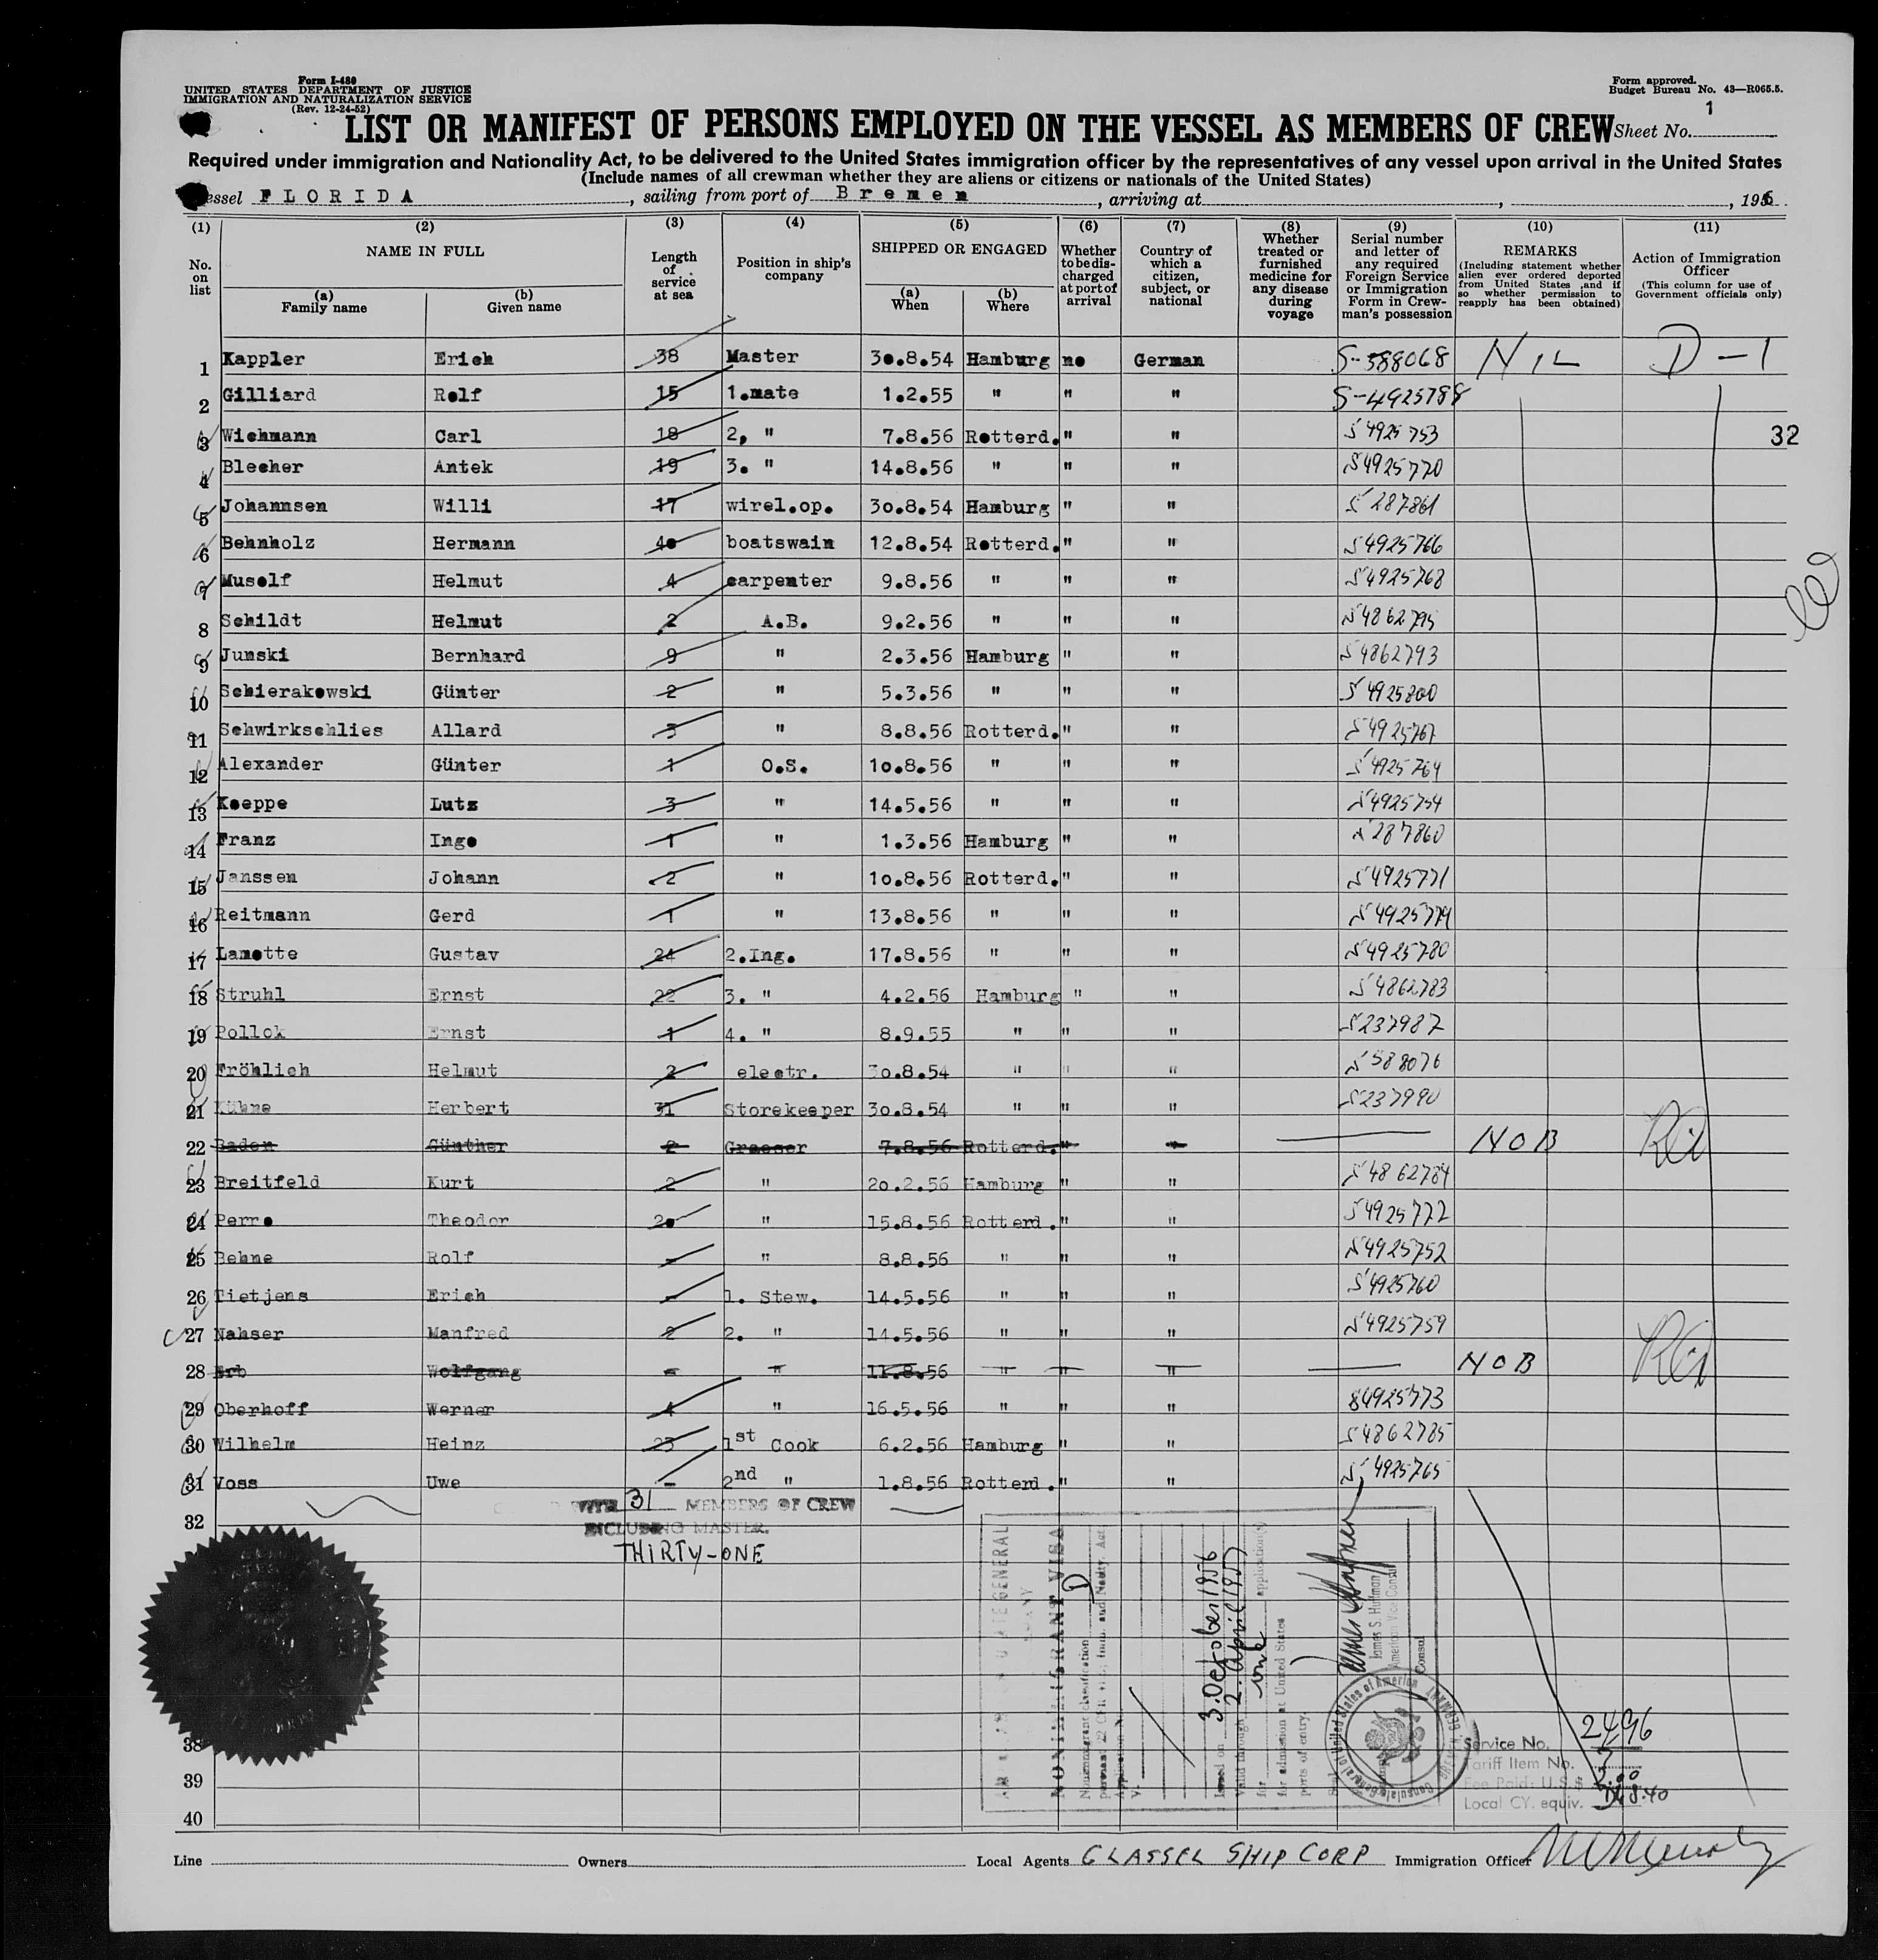 Form I-480
UNITED STATES DEPARTMENT OF JUSTICE
IMMIGRATION AND NATURALIZATION SERVICE
(Rev. 12-24-52)
Form approved.
Budget Bureau No. 43—R065.5.
LIST OR MANIFEST OF PERSONS EMPLOYED ON THE VESSEL AS MEMBERS OF CREW Sheet No. 1
Required under immigration and Nationality Act, to be delivered to the United States immigration officer by the representatives of any vessel upon arrival in the United States
(Include names of all crewman whether they are aliens or citizens or nationals of the United States)
essel FLORIDA, sailing from port of Bremen, arriving at , , 1956
(1) No. on list
(2) NAME IN FULL (a) Family name (b) Given name
(3) Length of service at sea
(4) Position in ship's company
(5) SHIPPED OR ENGAGED (a) When (b) Where
(6) Whether to be discharged at port of arrival
(7) Country of which a citizen, subject, or national
(8) Whether treated or furnished medicine for any disease during voyage
(9) Serial number and letter of any required Foreign Service or Immigration Form in Crewman's possession
(10) REMARKS (Including statement whether alien ever ordered deported from United States ,and if so whether permission to reapply has been obtained)
(11) Action of Immigration Officer (This column for use of Government officials only)
1 Kappler Erich 38 Master 30.8.54 Hamburg no German S-588068 NIL D-1
2 Gilliard Rolf 15 1.mate 1.2.55 " " " S-4925788
3 Wichmann Carl 18 2, " 7.8.56 Rotterd. " " S4925753 32
4 Blecher Antek 19 3. " 14.8.56 " " " S4925770
5 Johannsen Willi 17 wirel.op. 30.8.54 Hamburg " " S 287861
6 Behnholz Hermann 40 boatswain 12.8.54 Rotterd. " " S4925766
7 Musolf Helmut 4 carpenter 9.8.56 " " " S4925768
8 Schildt Helmut 2 A.B. 9.2.56 " " " S4862795
9 Junski Bernhard 9 " 2.3.56 Hamburg " " S4862793
10 Schierakowski Günter 2 " 5.3.56 " " " S4925800
11 Schwirkschlies Allard 3 " 8.8.56 Rotterd. " " S4925767
12 Alexander Günter 1 O.S. 10.8.56 " " " S4925764
13 Koeppe Lutz 3 " 14.5.56 " " " S4925754
14 Franz Ingo 1 " 1.3.56 Hamburg " " S287860
15 Janssen Johann 2 " 10.8.56 Rotterd. " " S4925771
16 Reitmann Gerd 1 " 13.8.56 " " " S4925779
17 Lamotte Gustav 24 2.Ing. 17.8.56 " " " S4925780
18 Struhl Ernst 22 3. " 4.2.56 Hamburg " " S4862783
19 Pollok Ernst 1 4. " 8.9.55 " " " S237987
20 Fröhlich Helmut 2 electr. 30.8.54 " " " S588076
21 Kühne Herbert 31 Storekeeper 30.8.54 " " " S237990
22 Baden Günther 2 Greaser 7.8.56 Rotterd. " " NOB
23 Breitfeld Kurt 2 " 20.2.56 Hamburg " " S4862784
24 Perro Theodor 20 " 15.8.56 Rotterd. " " S4925772
25 Behne Rolf - " 8.8.56 " " " S4925752
26 Tietjens Erich - 1. Stew. 14.5.56 " " " S4925760
27 Nahser Manfred 2 2. " 14.5.56 " " " S4925759
28 Erb Wolfgang - " 11.8.56 " " " NOB
29 Oberhoff Werner 4 " 16.5.56 " " " S4925773
30 Wilhelm Heinz 23 1st Cook 6.2.56 Hamburg " " S4862785
31 Voss Uwe - 2nd " 1.8.56 Rotterd. " " S4925765
WITH 31 MEMBERS OF CREW
INCLUDING MASTER.
32
THIRTY-ONE
GENERAL
NONIMMIGRANT VISA
Nonimmigrant classification D
Issued on 3. October 1956
Valid through 2. April 1957
for application(s)
for admission at United States
ports of entry.
James S. Huffman
American Vice Consul
Consul
Service No. 2496
Tariff Item No. 7
Fee Paid: U.S.$ 2.00
Local CY. equiv. DM 8.40
38
39
40
Line Owners Local Agents GLASSEL SHIP CORP Immigration Officer